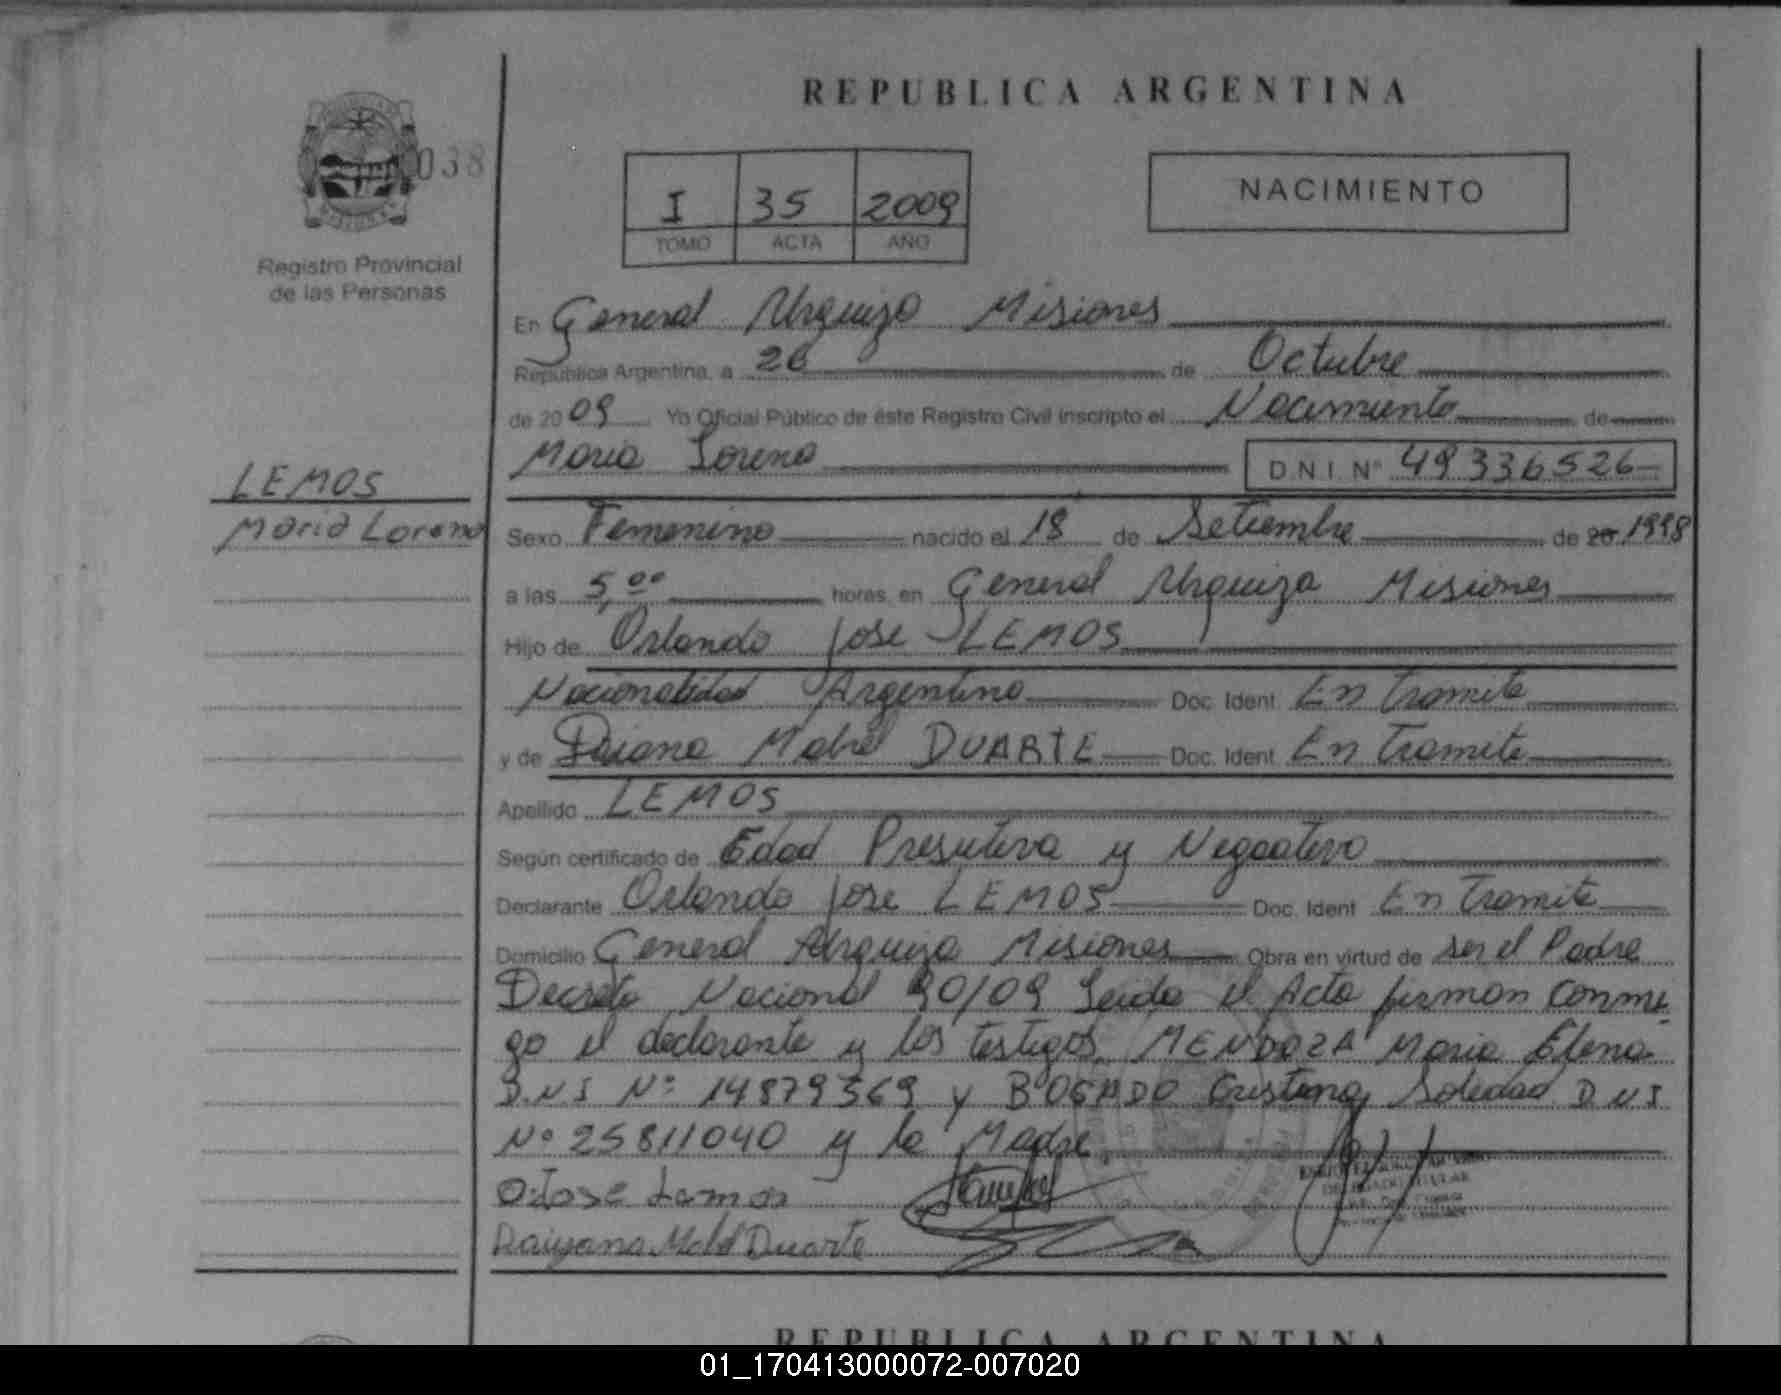 REPUBLICA ARGENTINA
038
I 35 2009
TOMO ACTA AÑO
NACIMIENTO
Registro Provincial
de las Personas
En General Urquiza Misiones
República Argentina, a 26 de Octubre
de 2009 Yo Oficial Público de éste Registro Civil inscripto el Nacimiento de
Maria Lorena D.N.I. Nº 49336526
LEMOS
Maria Lorena
Sexo Femenino nacido el 18 de Setiembre de 20 1998
a las 5,00 horas, en General Urquiza Misiones
Hijo de Orlando Jose LEMOS
Nacionalidad Argentina Doc. Ident. En tramite
y de Daiana Mabel DUARTE Doc. Ident. En tramite
Apellido LEMOS
Según certificado de Edad Presuntiva y Negativo
Declarante Orlando Jose LEMOS Doc. Ident. En tramite
Domicilio General Urquiza Misiones Obra en virtud de ser el Padre
Decreto Nacional 90/09 Leida el Acta firman conmi
go el declarante y los testigos MENDOZA Maria Elena
D.N.I Nº 14879369 y BOGADO Cristina Soledad D N I
Nº 25811040 y la Madre
O. Jose Lemos
Daiyana Mabel Duarte
REPUBLICA ARGENTINA
01_170413000072-007020